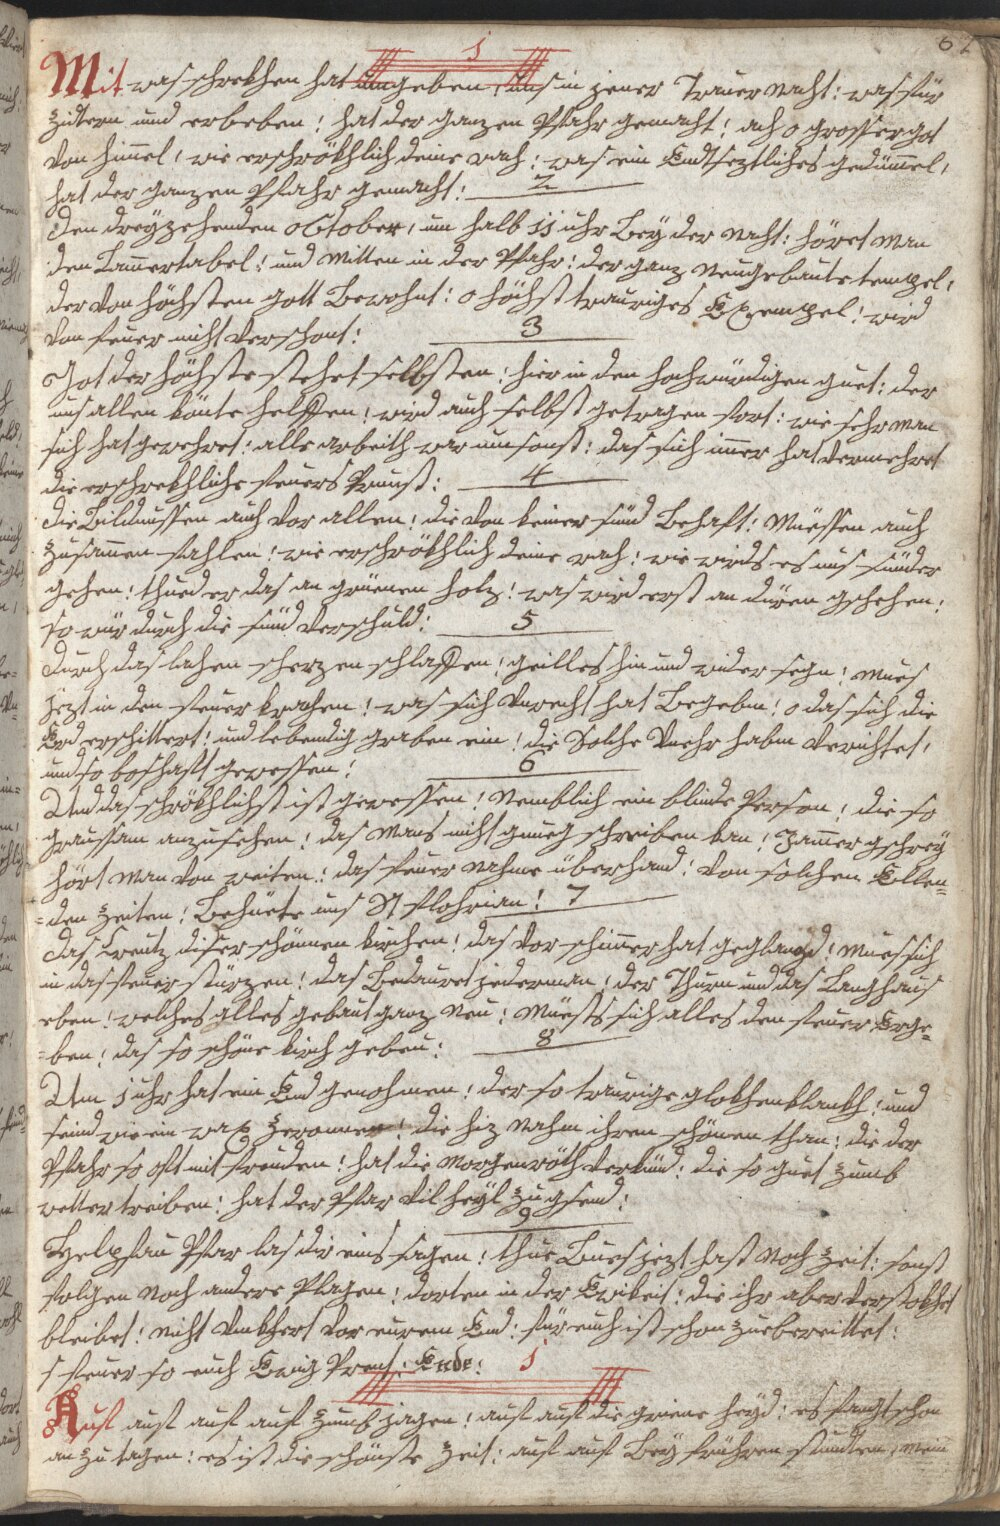 62
1
Mit was schrekhen hat umgeben! uns in jener Trauer Nacht: was für
Zittern und erbeben! hat der ganzen Pfahr gemacht! ach o grosser got
von himel! wie erschrökhlich deine rach! was ein Endtsezliches gedümel,
hat der ganzen Pfahr gemacht!
2
den dreyzehenden october, um halb 11 uhr Bey der Nacht: höret Man
den Lamertabel! und Mitten in der Pfahr! der ganz Neugebaute tempel,
der von höchsten gott Bewohnt: o höchst trauriges Exempel! wird
von feuer nicht verschont:
3
Got der höchste stehet selbsten! hier in den hochwürdigen guet: der
uns allen könte helffen! wird auch selbst getragen fort: wie sehr Man
sich hat gewehret: alle arbeith war umsonst: das sich imer hat vermehret
die erschrekhliche feuers Prunst:
4
die Bildnussen auch vor allen! die von keiner sünd Behaft: Müessen auch
Zusamen fahlen! wie erschrökhlich deine rach! wie wirds es uns sünder
gehen! thued er das an grüenen holz! was wird erst an düren gschehen!
so wür durch die sünd verschuld:
5
durch das lachen scherzen schlaffen! geilles hin und wider sehn! Mues
jezt in den feuer krachen! was sich Unrecht hat Begebn! o das sich die
Erd erschittert! und lebendig graben ein! die Solche Unehr habn verichtet!
und so boshaft gewessen!
6
Und das schröklichst ist gewessen! Nemblich ein blinde Person! die so
graussam anzusehen! das Mans nicht gnueg schreiben kan! Jamergschrey
hört Man von weiten! das feuer Nahme überhand! von solchen Ellen=
=den Zeiten! Behüete uns St Florian!
7
das Creutz diser schönnen kirchen! das vor schimer hat geglanzd! Mues sich
in das feuer stürzen! das Bedauret jederman! der Thurn und das Langhaus
eben! welches alles gebaut ganz Neu! Müests sich alles den feuer Erge=
=ben! das so schöne kirch gebeu:
8
Um 1 uhr hat ein End genohmen! der so traurige glokhenklankh! und
seind wie ein wax Zeronnen! die hiz Nahm ihren schönen than: die der
Pfahr so oft mit freuden! hat die Morgenröth verkünd: die so guet Zumb
wetter treiben! hat der Pfar vil heyl Zugsend!
9
Helpfau Pfar las dir eins sagen! thue Bues jezt hast Noch Zeit: sonst
folgen Noch andere Plagen! dorten in der Ewikeit: die ihr aber verstokhet
bleibet! Nicht Umkhert vor eurem End! für euch ist schon Zuebereittet:
s feuer so euch Ewig Prent: Ende:
1
Auf auf auf auf Zumb jagen! auf auf die griene heyd: es fangt schon
an Zu tagen: es ist die schönste Zeit: auf auf Bey frühen stundten, Mein